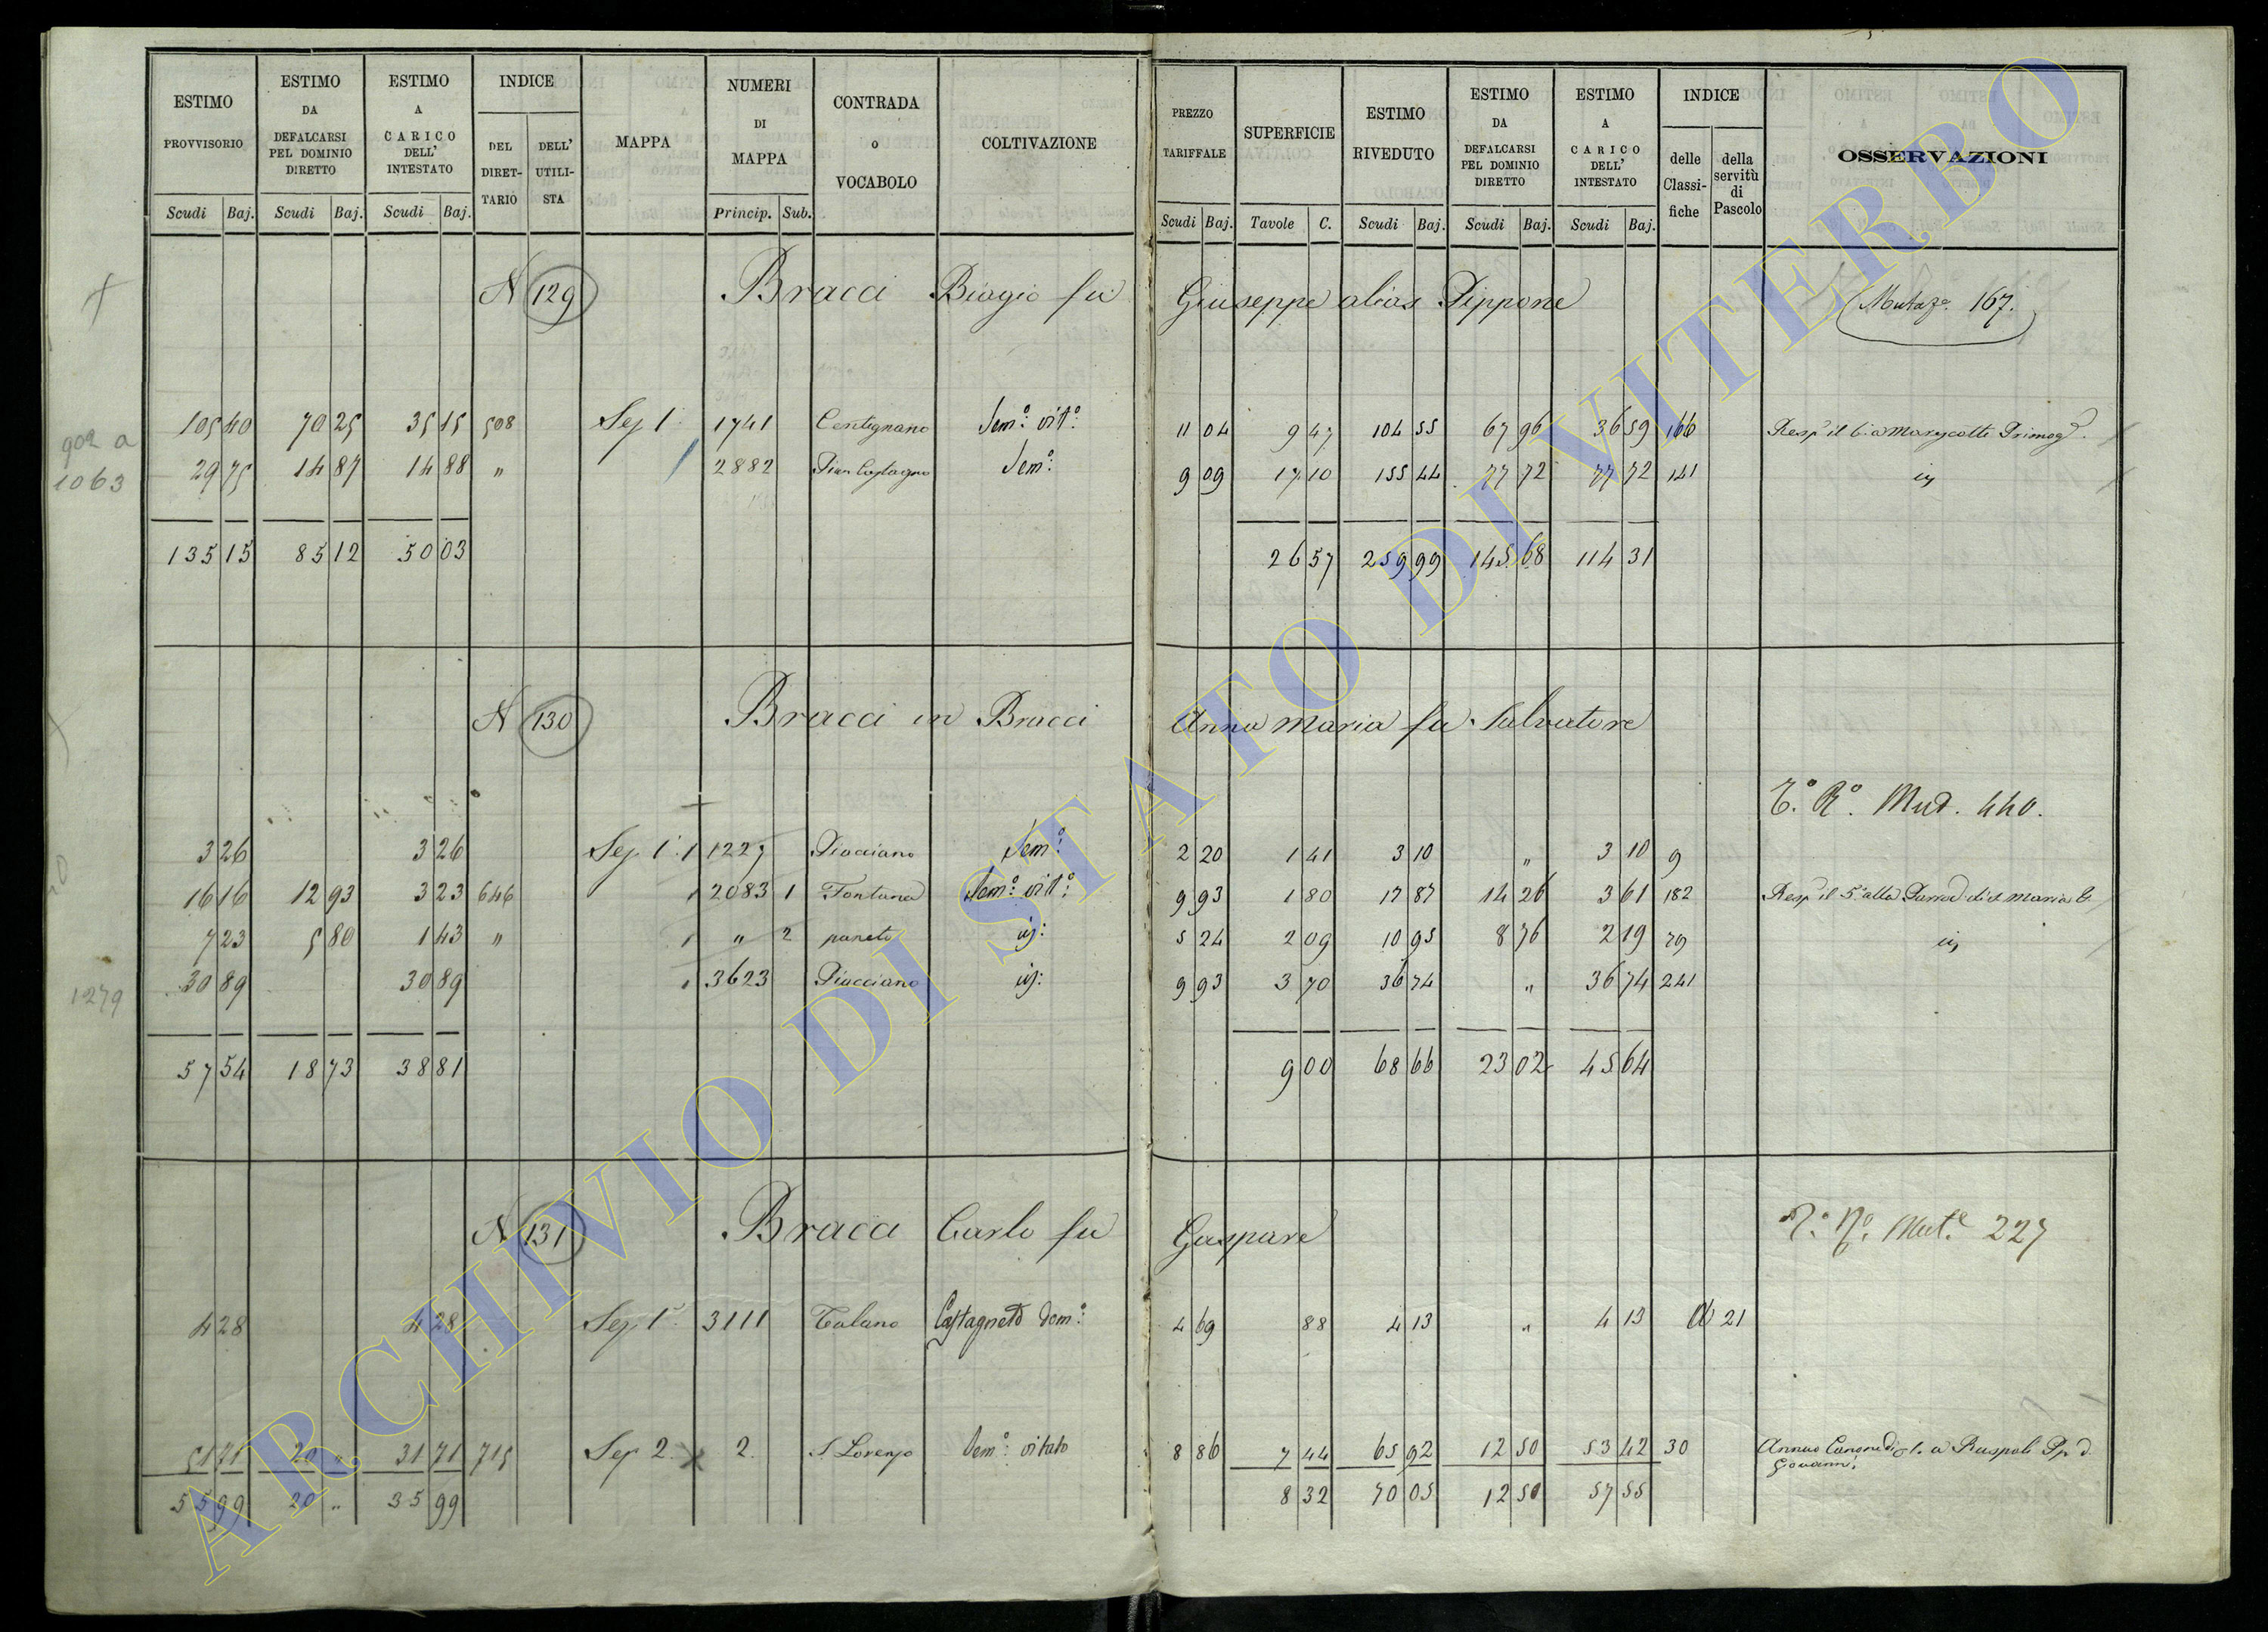 ESTIMO PROVVISORIO Scudi Baj.
ESTIMO DA DEFALCARSI PEL DOMINIO DIRETTO Scudi Baj.
ESTIMO A CARICO DELL' INTESTATO Scudi Baj.
INDICE DEL DIRET-TARIO DELL' UTILI-STA
MAPPA
NUMERI DI MAPPA Princip. Sub.
CONTRADA O VOCABOLO
COLTIVAZIONE
PREZZO TARIFFALE Scudi Baj.
SUPERFICIE Tavole C.
ESTIMO RIVEDUTO Scudi Baj.
ESTIMO DA DEFALCARSI PEL DOMINIO DIRETTO Scudi Baj.
ESTIMO A CARICO DELL' INTESTATO Scudi Baj.
INDICE delle Classi-fiche della servitù di Pascolo
OSSERVAZIONI
N 129 Bracci Biagio fu Giuseppe alias Pippone
Mutaz.e 167.
902 a
1063
105 40 70 25 35 15 508 Sez 1 1741 Centignano Sem.o vit.o 11 04 9 47 104 55 67 96 36 59 166 Resp. il 6.a Marescotti Primog.
29 75 14 87 14 88 " 2882 Pian Castagno Sem.o 9 09 17 10 155 44 77 72 77 72 141 id
135 15 85 12 50 03 26 57 259 99 145 68 114 31
N 130 Bracci in Bracci Anna Maria fu Salvatore
T.o R.o Mut. 440.
3 26 3 26 Sez 1 1 1227 Piacciano Sem.o 2 20 1 41 3 10 " 3 10 9
16 16 12 93 3 23 646 1 2083 1 Fontana Sem.o vit.o 9 93 1 80 17 87 14 26 3 61 182 Resp il 5.o alla Parroc di S. Maria
7 23 5 80 1 43 " 1 " 2 id: 5 24 2 09 10 95 8 76 2 19 79 id
1279
30 89 30 89 1 3623 Piacciano id: 9 93 3 70 36 74 " 36 74 241
57 54 18 73 38 81 9 00 68 66 23 02 45 64
N 131 Bracci Carlo fu Gaspare
Mut.e 227
4 28 4 28 Sez 1 3111 Talano Castagneto dom.o 4 69 88 4 13 " 4 13 21
51 71 20 " 31 71 715 Sez 2 2 S. Lorenzo Sem.o vitato 8 86 7 44 65 92 12 50 53 42 30 Annuo Canone di a Ruspoli Pp. d. Giovanni
55 99 20 " 35 99 8 32 70 05 12 50 57 55
ARCHIVIO DI STATO DI VITERBO